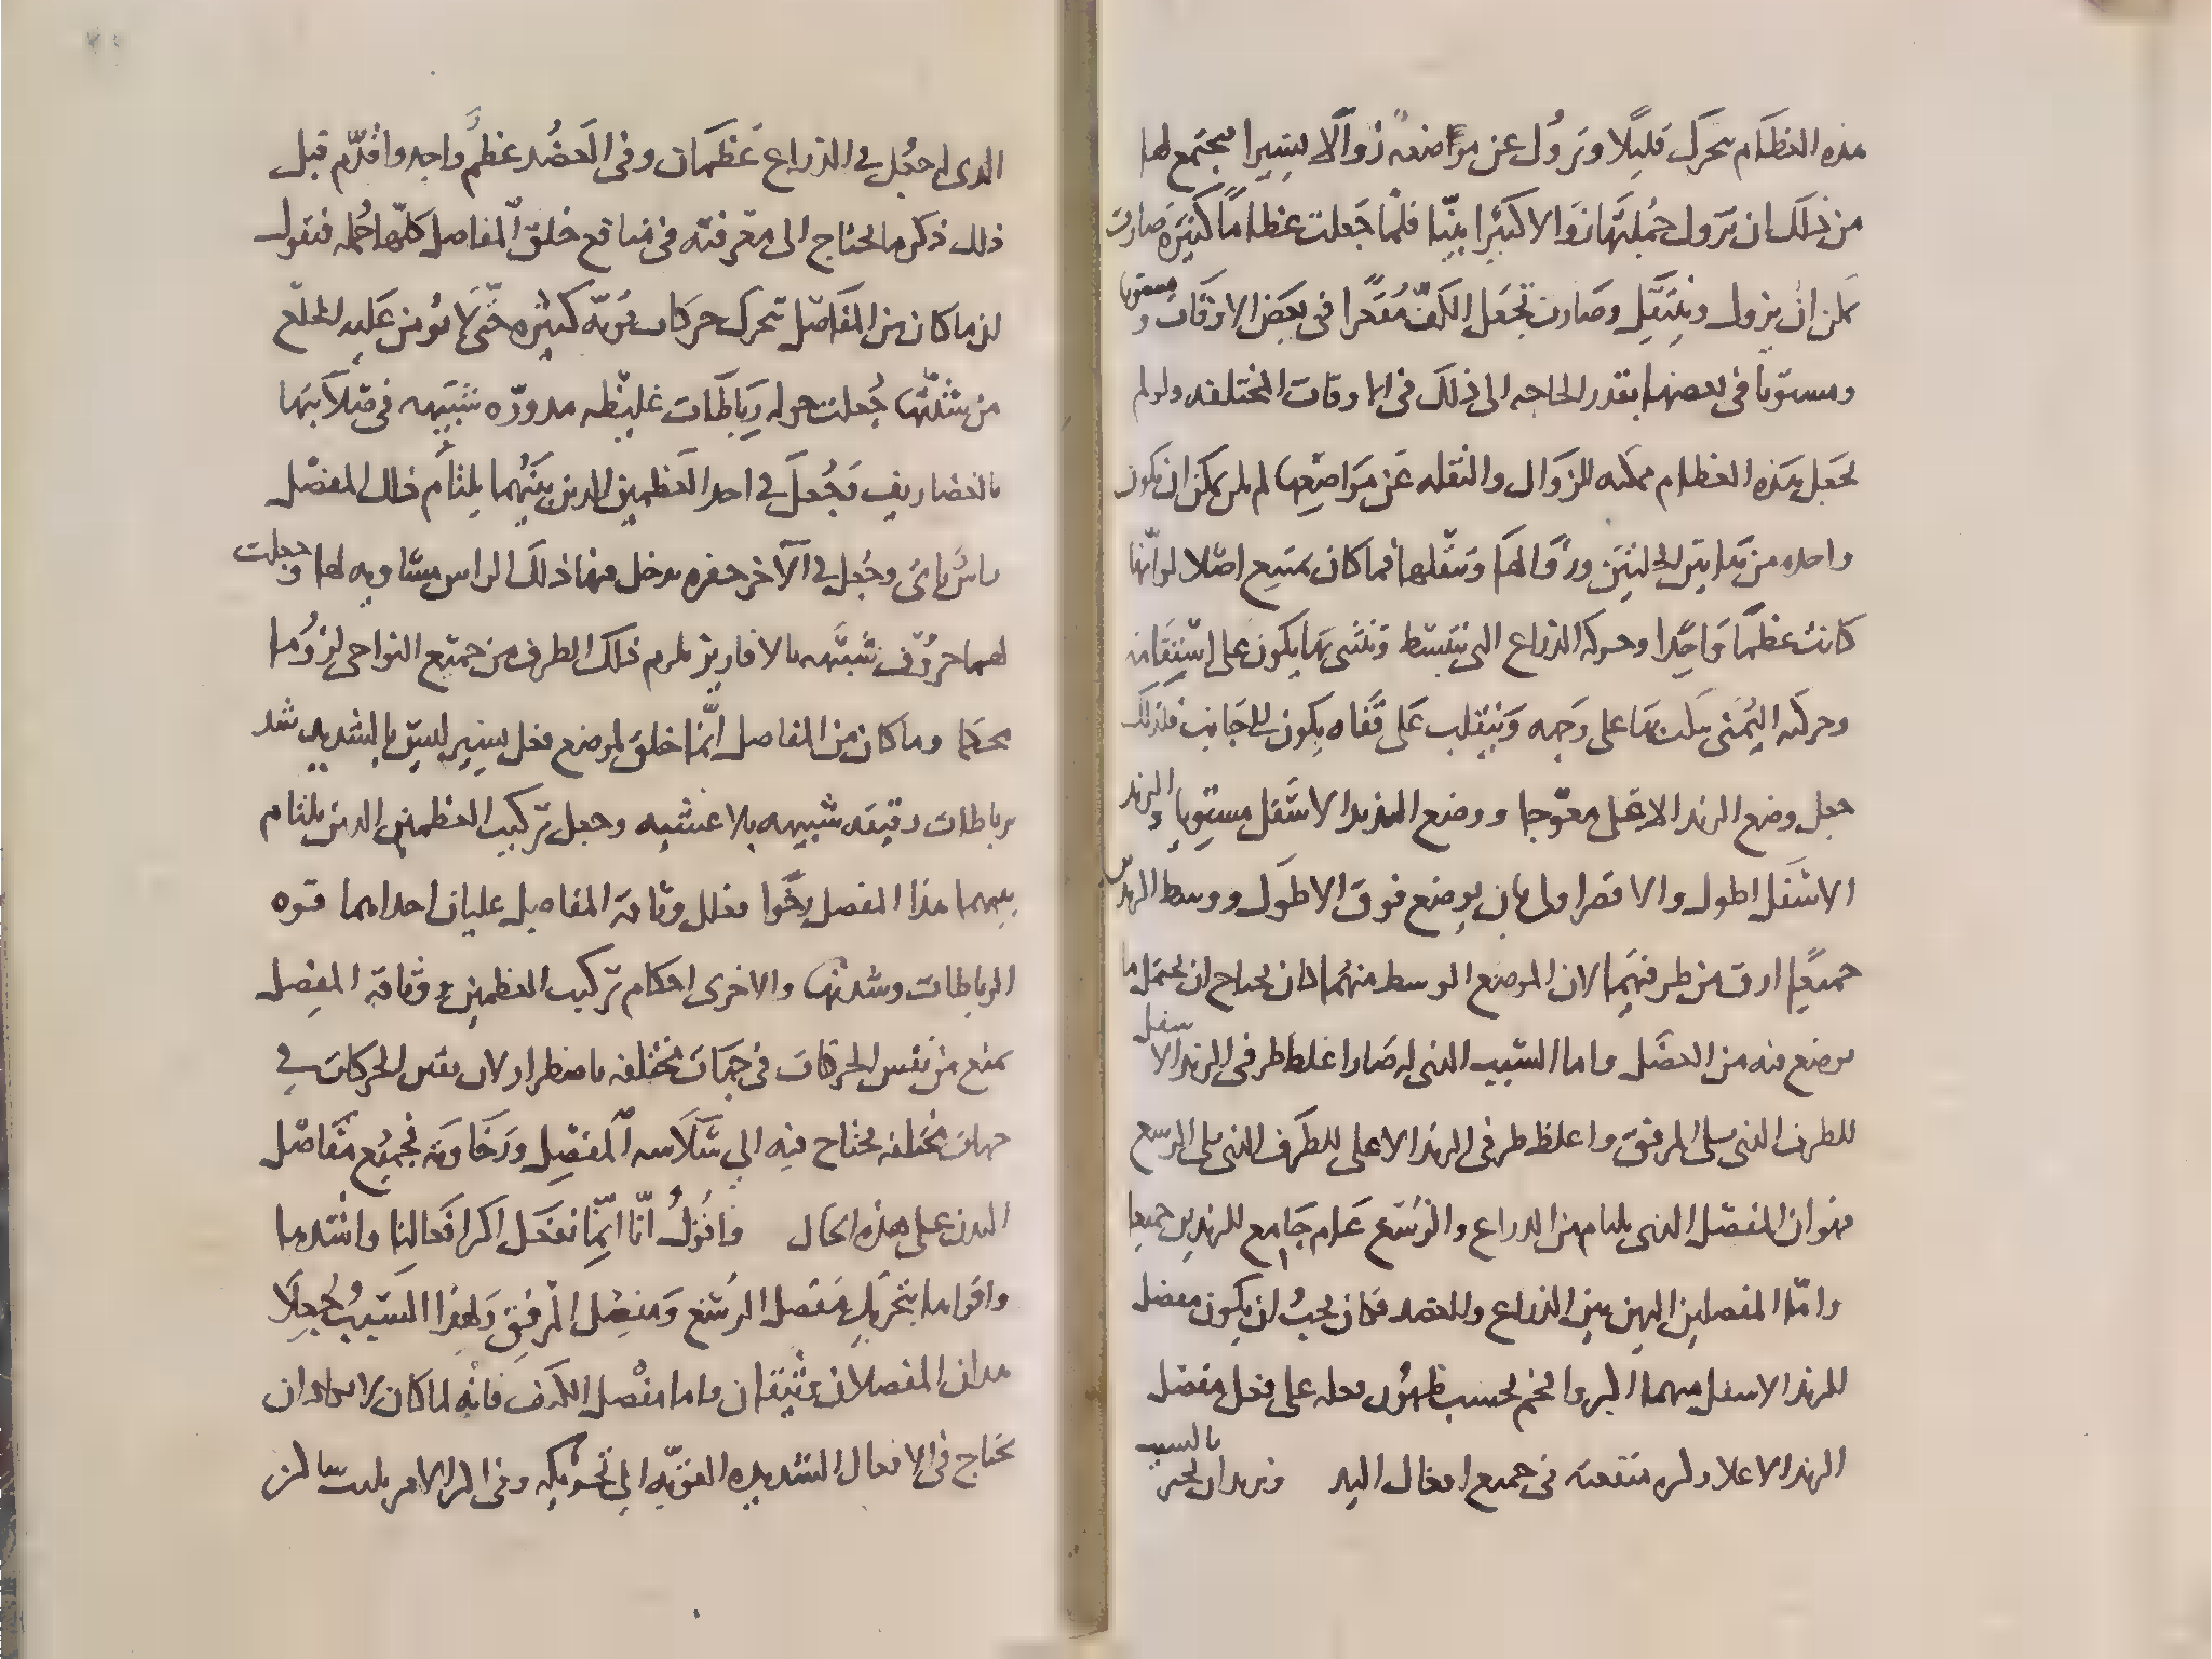 هذه العظام يتحرك قليلا وتزول عن مواضعه زوالا يسيرا يجتمع لها
من ذلك ان تزول جملتها زوالا كثيرا بينا فلما جعلت عظاما كثيرة صارت
يمكن ان يزول وينتقل وصارت تجعل الكف مقعرا في بعض الاوقات ومستويا
ومستويا في بعضها بقدر الحاجه الى ذلك في الاوقات المختلفه ولو لم
يجعل هذه العظام ممكنه للزوال والنقله عن مواضعها لم يكن يمكن ان يكون
واحده من هاتين الحالتين وزوالها وتنقلها فما كان يمتنع اصلا لو انها
كانت عظما واحدا وحركه الذراع التي تنبسط وتنثني بها يكون على استقامه
وحركته التي ينكب بها على وجهه وينقلب على قفاه يكون الى الجانب فلذلك
جعل وضع الزند الاعلى معوجا ووضع الزند الاسفل مستويا والزند
الاسفل اطول والاقصر اولى بان يوضع فوق الاطول ووسط الزندين
جميعا ارق من طرفيهما لان الموضع الوسط منهما كان يحتاج ان يحتمل ما
يوضع فيه من العضل واما السبب الذي له صار اغلظ طرفي الزند الاسفل
للطرف الذي يلي المرفق واغلظ طرفي الزند الاعلى للطرف الذي يلي الرسغ
فهو ان المفصل الذي يلتام من الذراع والرسغ عام جامع للزندين جميعا
واما المفصلين الذين بين الذراع والعضد فكان يجب ان يكون مفصل
للزند الاسفل منهما اكبر وافخم بحسب ظهور فعله على فعل مفصل
الزند الاعلا وكثره منفعته في جميع افعال اليد ونريد ان نخبر بالسبب
الذي له جعل في الذراع عظمان وفي العضد عظم واحد واقدم قبل
ذلك ذكر ما يحتاج الى معرفته في منافع خلق المفاصل كلها جمله فنقول
ان ما كان من المفاصل تتحرك حركات قويه كثيره حتى لا يؤمن عليه الخلع
من شدتها جعلت حوله رباطات غليظه مدوره شبيهه في صلابتها
بالغضاريف وجعل في احد العظمين الذين بينهما يلتام ذلك المفصل
راس ناتئ وجعل في الآخر حفره يدخل فيها ذلك الراس مساويه لها وجعلت
لهما حروف شبيهه بالافاريز يلزم ذلك الطرف من جميع النواحي لزوما
محكما وما كان من المفاصل انما خلق لموضع فعل يسير ليس بالشديد شد
برباطات دقيقه شبيهه بالاغشيه وجعل تركيب العظمين الذين يلتام
بينهما هذا المفصل رخوا فعلل وثاقة المفاصل علتان احداهما قوه
الرباطات وشدتها والاخرى احكام تركيب العظمين ووثاقة المفصل
يمنع من تفنن الحركات في جهات مختلفه باضطرار لان تفنن الحركات في
جهات مختلفه يحتاج فيه الى سلاسه المفصل ورخاوته فجميع مفاصل
البدن على هذه الحال فاقول انا انما نفعل اكثر افعالنا واشدها
واقواها بتحريك مفصل الرسغ ومفصل المرفق ولهذا السبب جعلا
هذان المفصلان وثيقان واما مفصل الكتف فانه لما كان لا يكاد ان
يحتاج في الافعال الشديده القويه الى تحريكه وفي اكثر الامر